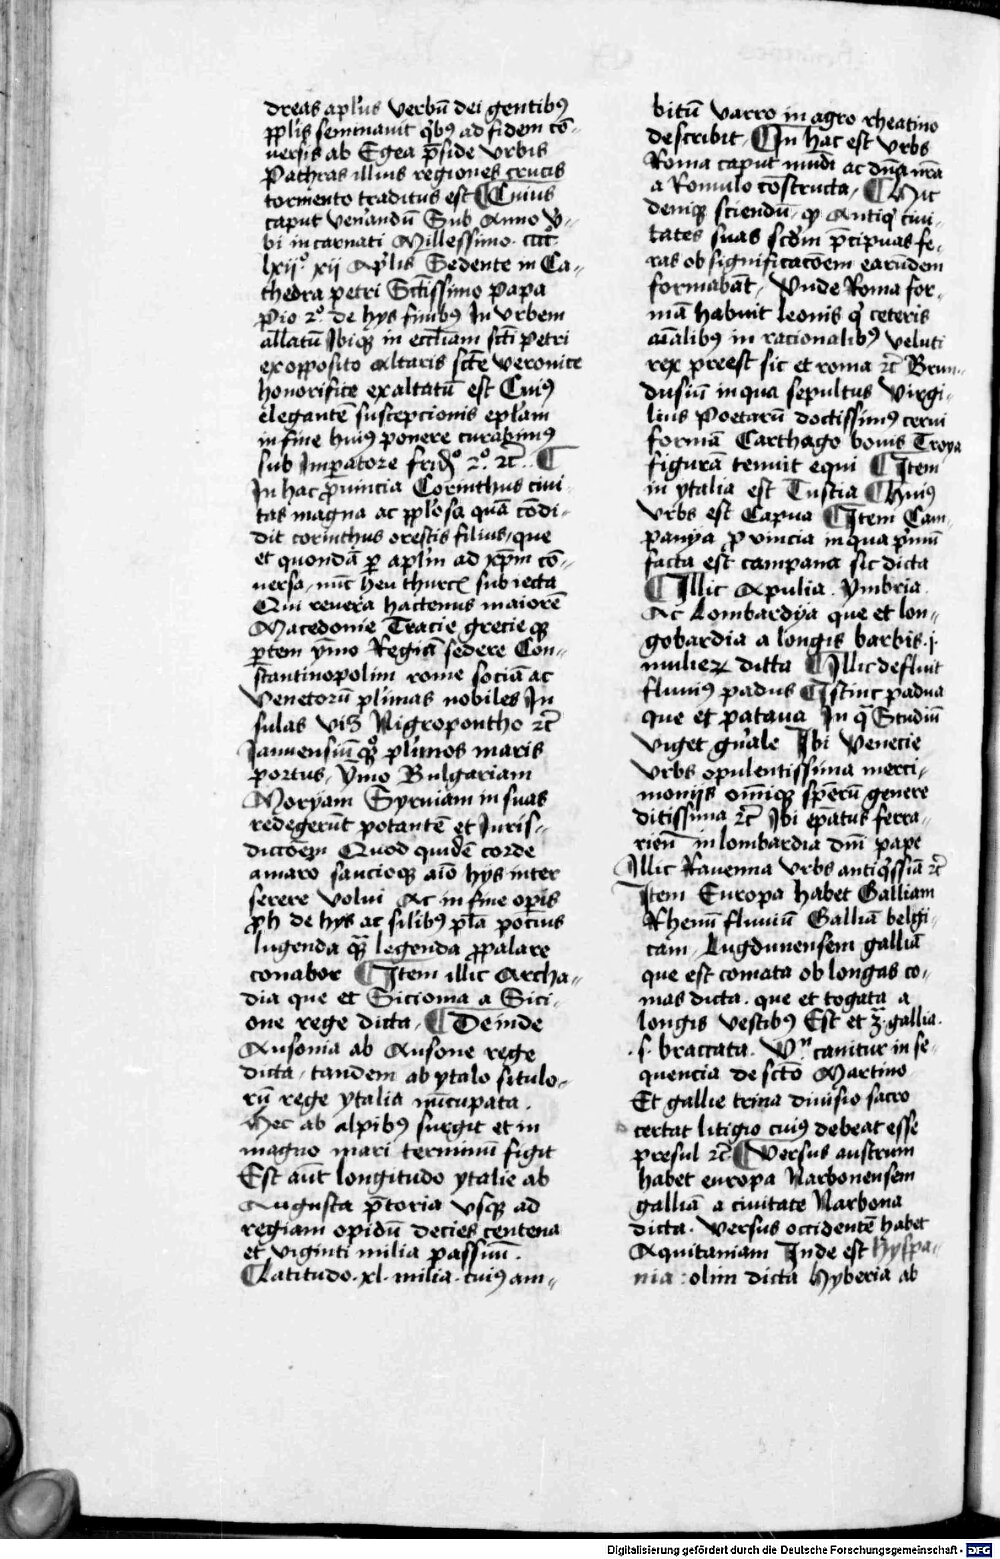 dreas aplus verbū dei gentibꝫ
pplis seminauit qꝫbꝫ ad fidem cō-
uersis ab Egea pside vrbis
Pathras illius regiones crucis
tormento traditus est ¶ Cuius
caput venandū Sub Anno v-
bi incarnati Millessimo cccc
lxijº xij Aplis Sedente in Ca-
thedra petri Sctissimo Papa
Pio 2º de hys finibꝫ In vrbem
allatū Ibiqꝫ in eccliam scti petri
ex opposito Altaris scte veronice
honorifice exaltatū est Cuiꝫ
elegantē suscepcionis eplam
in fine huiꝫ ponere curabimꝫ
sub Impatore fridº 2º ꝛc̄ ¶
In hac puincia Corinthus ciui-
tas magna ac pplosa quā cōdi-
dit corinthus orestis filius, que
et quondā p aplm ad xpm cō-
uersa, nūc heu thurcꝫ subiecta
Qui reuera hactenus maiorē
Macedonie Tracie grecieqꝫ
ptem ymo Regiā sedere Con-
stantinopolim rome sociā ac
Venetorū plimas nobiles In
sulas viꝫ Nigropontho ꝛc̄
Januensiū qꝫ plimos maris
portus, ymo Bulgariam
Moryam Syruiam in suas
redegerūt potantē et Juris-
dictōem Quod quidē corde
amaro saucioqꝫ aīo hys inter
serere volui Ac in fine opis
ph de hys ac silibꝫ pla pocius
lugenda qꝫ legenda ppalare
conabor ¶ Item illic Archa-
dia que et Sicioma a Sici-
one rege dicta, ¶ Deinde
Ausonia ab Ausone rege
dicta, tandem ab ytalo situlo-
rū rege ytalia nūcupata.
Hec ab alpibꝫ surgit et in
magno mari terminū figit
Est aūt longitudo ytalie ab
Augusta ptoria vsqꝫ ad
regiam opidū decies centena
et viginti milia passuū.
¶ Latitudo. xl. milia. cuiꝫ am-
bitū varro in agro rheatino
describit, ¶ In hac est vrbs
Roma caput mūdi ac dna nra
a Romulo cōstructa, ¶ Hic
deniqꝫ sciendū, qꝫ Antiqi ciui-
tates suas scdm pcipuas fe-
ras ob significacōem earūdem
formabāt, Vnde Roma for-
mā habuit leonis qꝫ ceteris
aīalibꝫ in racionalibꝫ veluti
rex preest sic et roma ꝛc̄ Brun-
dusiū in qua sepultus virgi-
lius Poetarū doctissimꝫ cerui
formā Carthago bouis Troya
figurā tenuit equi ¶ Item
in ytalia est Tustia ¶ Huiꝫ
vrbs est Capua ¶ Item Cam-
panya puincia in qua pmū
facta est campana sic dicta
¶ Illic Apulia. ymbria.
Ac Lombardya que et lon-
gobardia a longis barbis .i.
mulieꝝ dicta ¶ Illic defluit
fluuiꝫ padus ¶ Istinc padua
que et pataua In qꝫ Studiū
viget gnale Ibi Venecie
vrbs opulentissima merci-
monijs omīqꝫ sperū genere
ditissima ꝛc̄ Ibi epatus ferra-
rien in lombardia dni pape
Illic Rauenna vrbs antiqssiā ꝛc̄
Item Europa habet Galliam
Rhenū fluuiū Galliā belgi-
cam, Lugdunensem galliā
que est comata ob longas co-
mas dicta. que et togata a
longis vestibꝫ Est et 3ª gallia.
.s. braccata. Vⁿ canitur in se-
quencia de scto Martino
Et gallie trina diuisio sacro
certat litigio cuiꝫ debeat esse
presul ꝛc̄ ¶ Versus austrum
habet europa Narbonensem
galliā a ciuitate Narbona
dicta. Versus occidentē habet
Aquitaniam Inde est hyspa-
nia: olim dicta hyberia ab
Digitalisierung gefördert durch die Deutsche Forschungsgemeinschaft - DFG